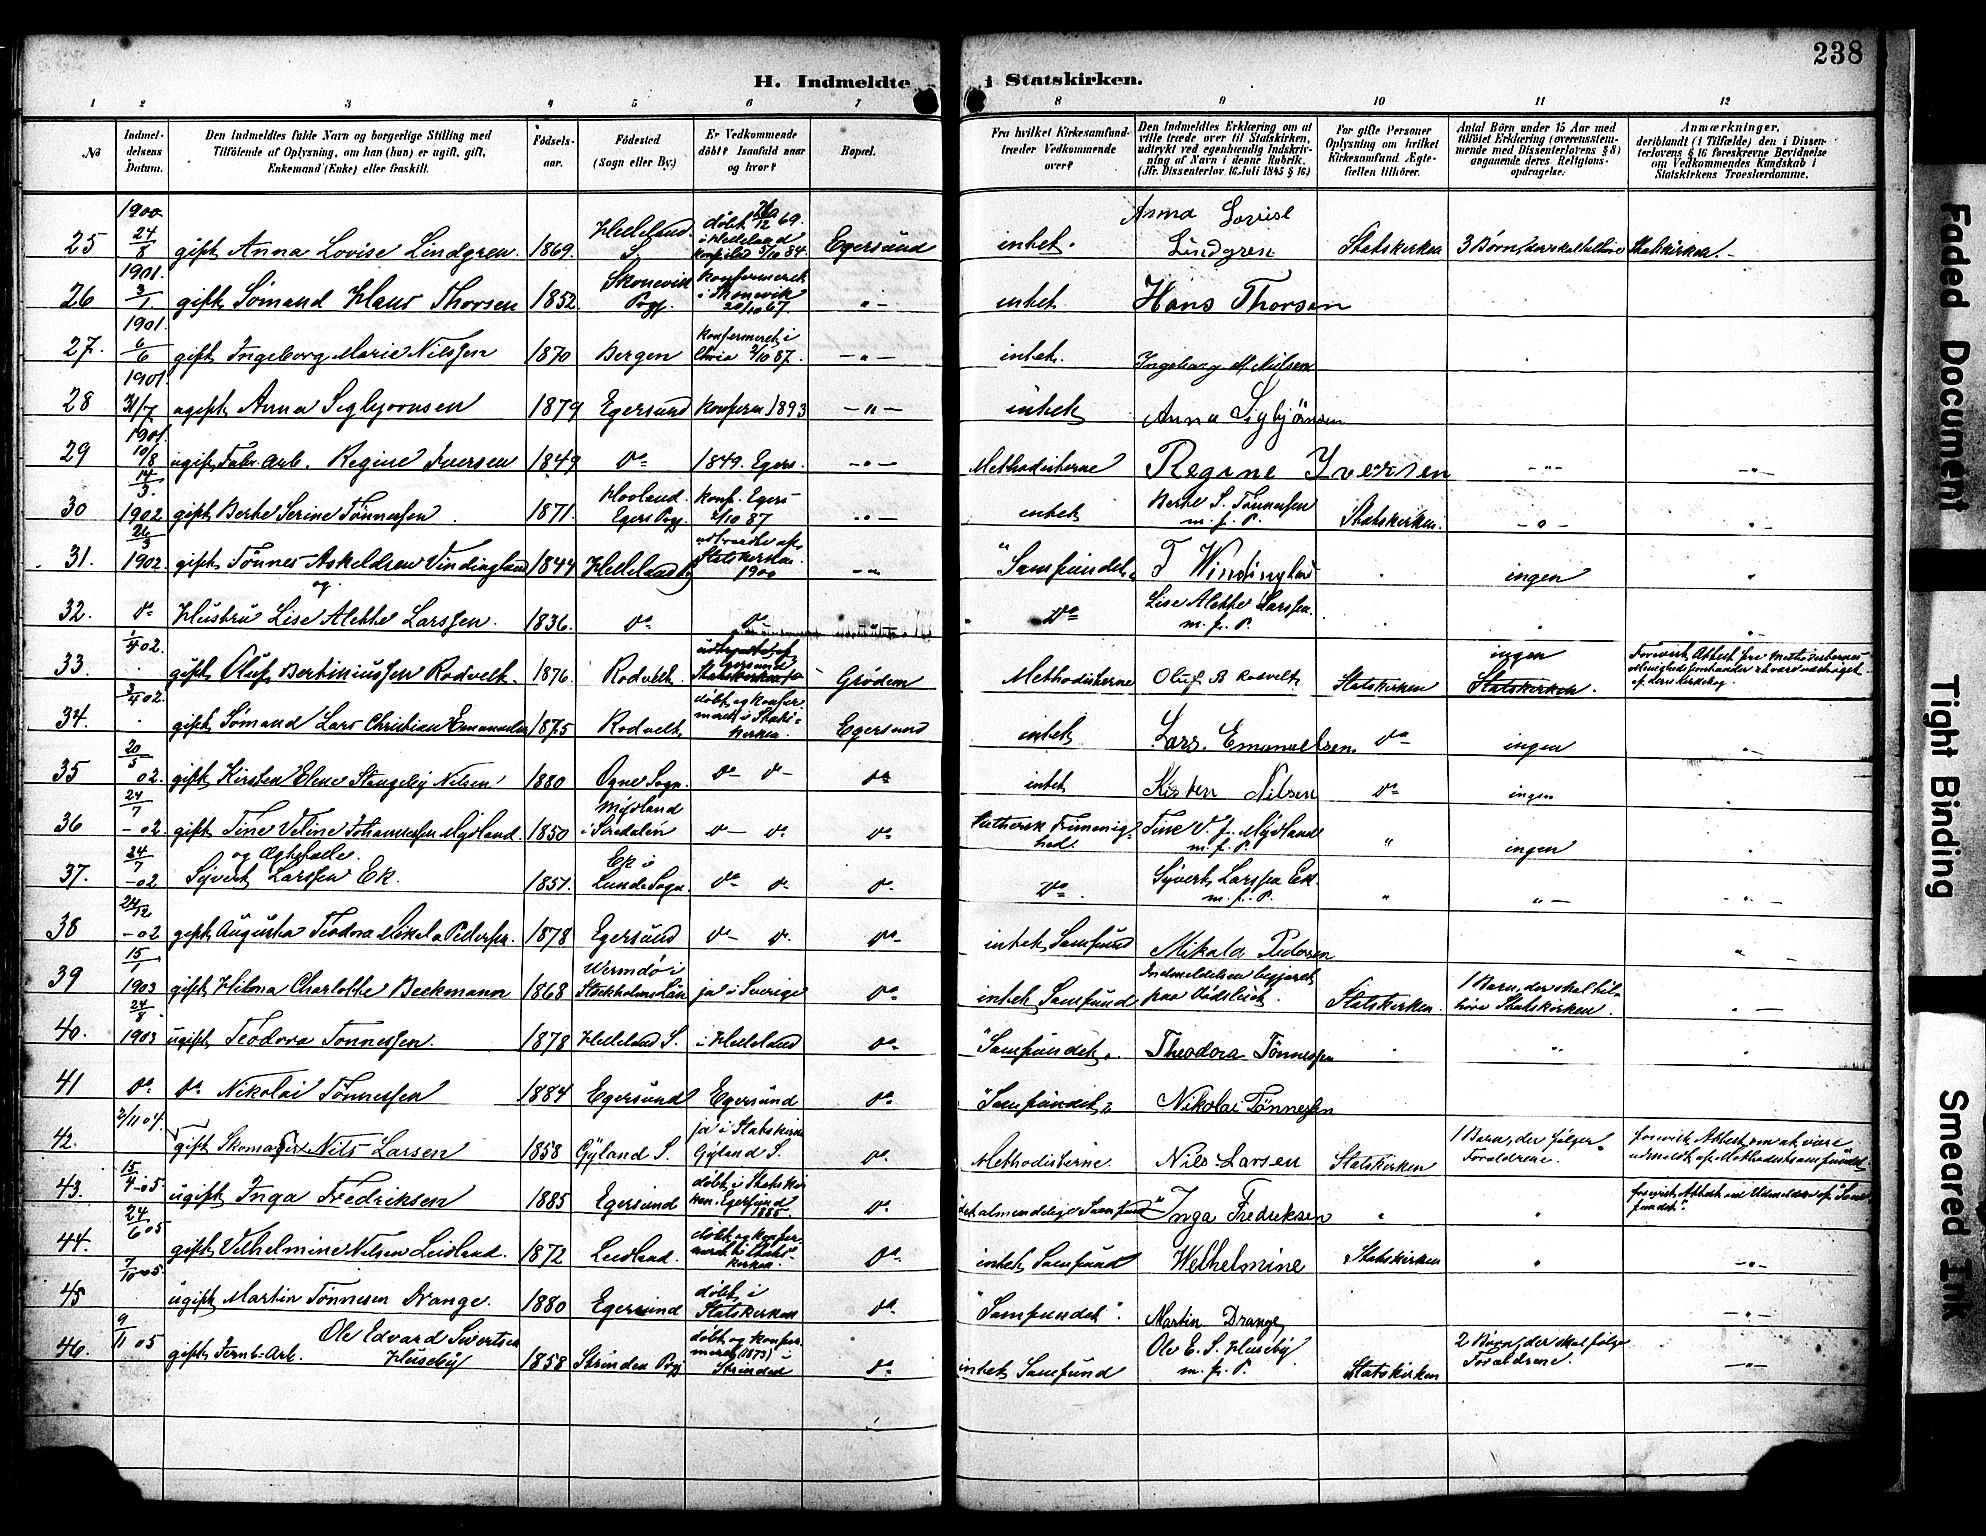 238
H. Indmeldte i Statskirken.
1 2 3 4 5 6 7 8 9 10 11 12
No
Indmel-
delsens
Datum.
Den Indmeldtes fulde Navn og borgerlige Stilling med
Tilföiende af Oplysning, om han (hun) er ugift, gift,
Enkemand (Enke) eller fraskilt.
Födsels-
aar.
Födested
(Sogn eller By.)
Er Vedkommende
döbt? Isaafald naar
og hvor?
Bopæl.
Fra hvilket Kirkesamfund-
træder Vedkommende
over?
Den Indmeldtes Erklæring om at
ville træde over til Statskirken,
udtrykt ved egenhændig Indskriv-
ning af Navn i denne Rubrik.
(Jfr. Dissenterlov 16 Juli 1845 § 16)
For gifte Personer
Oplysning om hvilket
Kirkesamfund Ægte-
fællen tilhörer.
Antal Börn under 15 Aar med
tilföiet Erklæring (overensstem-
mende med Dissenterlovens § 8)
angaaende deres Religions-
opdragelse.
Anmærkninger,
deriblandt (i Tilfælde) den i Dissen-
terlovens § 16 foreskrevne Bevidnelse
om Vedkommendes Kundskab i
Statskirkens Troeslærdomme.
25 1900 24/8 gift Anna Lovise Lindgren 1869. Helleland S. døbt 12 69. i Helleland Egersund intet. Anna Lovise Lindgren Statskirken 3 Børn, der skal tilhøre Statskirken.
26 1901. 3/1 gift Sømand Hans Thorsen 1852. Skonevik Pgj. konfirmeret i Skonevik 20/10 67. -"- intet Hans Thorsen
27. 1901. 6/6 gift Ingeborg Marie Nilssen 1870 Bergen konfirmeret i Chria 2/10 87. -"- intet. Ingeborg M. Nilsen
28 1901. 31/7 ugift Anna Sigbjørnsen 1879 Egersund konfirm 1893 -"- intet Anna Sigbjörnsen
29 1901. 10/8 ugift Fabr. Arb. Regine Iversen 1849 do 1849. Egers. -"- Methodisterne Regine Iversen -"- -"-
30 14/3. 1902 gift Berte Serine Tønnessen 1871. Hovland Egers Pgj. konf. Egers- 2/10 87 -"- intet Berte S. Tønnessen m. f. P. Statskirken. -"- "-
31. 26/3 1902. gift Tønnes Askeldsen Vindingland og 1844 Helleland Statskirken 1900 -"- "Samfundet" T Windingland ingen "
32. do Hustru Lise Alette Larssen. 1836. do do do Lise Alette Larssen m. f. P. "
33 1/4 02. gift Oluf Bertiniussen Rodvelt. 1876. Rodvelt Statskirken Grødem Methodisterne Oluf B Rodvelt Statskirken ingen Statskirken. Forevist Attest fra Methodisternes
34. 3/4 02. gift Sømand Lars Christian Emanuelsen 1875 Rodvelt døbt og konfir- meret i Stats- kirken. Egersund intet Lars. Emanuelsen. do ingen "-
35 20/5 02. gift Kirsten Elene Stangeby Nilsen 1880 Ogne Sogn. do do do intet Kirsten Nilsen do ingen
36 24/7 -02. gift Tine Veline Johannessen Mydland. og Ægtefælle. 1850 Mydland i Siredalen do do do Luthersk Frimenig- hed Tine V. J. Mydland m. f. P. " ingen
37. 24/7 -02 Syvert Larssen Ek. 1851. Ek i Lunde Sogn. do do do do Syvert Larssen Ek m. f. P. " "- -"-
38 24/12 -02 gift Augusta Teodora Mikala Pedersen. 1878 Egersund do do do intet Samfund Mikala Pedersen "-
39 15/1 1903 gift Hilma Charlotte Beckmann 1868 Wermdø i Stockholms Län ja i Sverige do intet Samfund Indmeldelsen begjæret paa Dødsleiet. Statskirken. 1 Barn, der skal til- høre Statskirken.
40. 24/8 1903 ugift Teodora Tønnessen. 1878 Helleland S. i Helleland do "Samfundet". Theodora Tønnessen "
41 do do Nikolai Tønnessen 1884 Egersund Egersund do "Samfundet" Nikolai Tønnessen
42. 2/11 04. gift Skomager Nils Larsen 1858 Gyland S. ja i Statskirken Gyland S. do Methodisterne. Nils Larsen Statskirken 1 Barn, der følger Forældrene. forevist Attest om at være udmeldt af Methodistsamfundet
43. 15/4 -05 ugift Inga Fredriksen 1885 Egersund døbt i Statskir- ken. Egersund 1885 do "det almindelige Samfund" Inga Fredriksen " " forevist Attest om Udmeldelse af "Sam- fundet".
44. 24/6 05 gift Vilhelmine Nilsen Leidland. 1872 Leidland. døbt og konfir- meret i Stats- kirken. do intet Samfund Welhelmine Statskirken " -"-
45 7/10 05. ugift Martin Tønnesen Drange. 1880 Egersund døbt i Statskirken do "Samfundet". Martin Drange -"-
46. 9/11 05 gift Jernb.-Arb. Ole Edvard Sivertsen Huseby 1858 Strinden Pgj døbt og konfir- meret (1873) i Strinden do intet Samfund Ole E. S. Huseby m. f. P. Statskirken 2 Børn, der skal følge Forældrene. -"-
Faded Document
Tight Binding
Smeared Ink